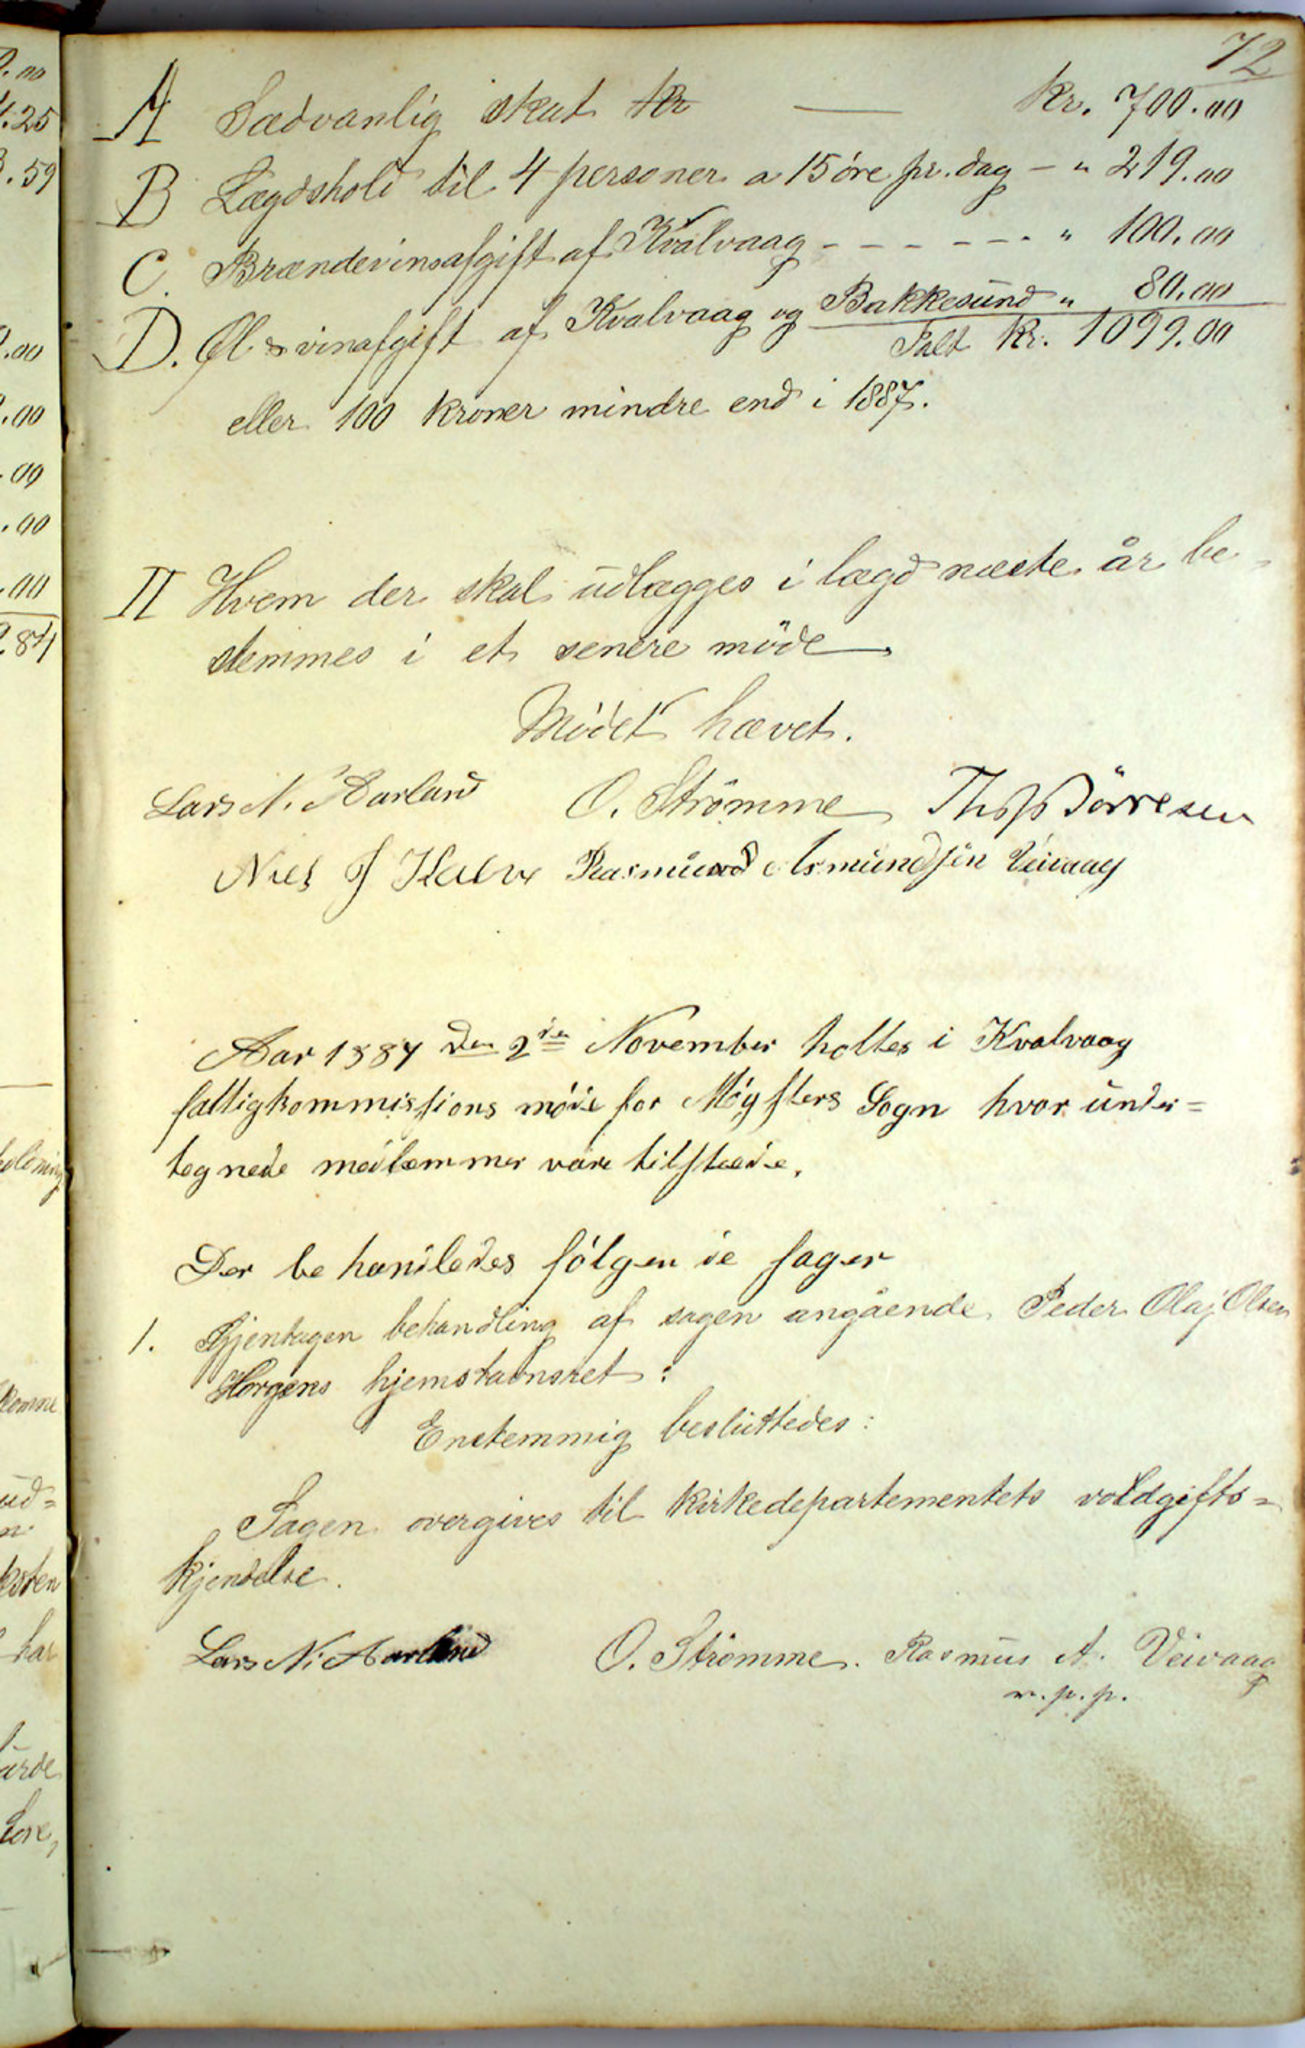 72
A Sædvanlig skat kr — kr. 700.00
B Lægdshold til 4 personer a 15 öre pr. dag - " 219.00
C. Brændevinsafgift af Kvalvaag - - - - - - " 100.00
D. Øl & vinafgift af Kvalvaag og Bakkesund " 80.00
Ialt kr. 1099.00
eller 100 kroner mindre end i 1887.
II Hvem der skal udlægges i lægd næste år be-
stemmes i et senere möde
Mödet hævet.
Lars N. Aarland O. Strömme Ths Börresen
Niels J Kalve Rasmus Asmundsen Veivaag
Aar 1887 den 2den November holtes i Kvalvaag
fattigkommissions möde for Møgsters Sogn hvor under=
tegnede medlemmer vare tilstæde.
Der behandledes følgende sager
1. Gjentagen behandling af sagen angående Peder Olaj Olsen
Horgens hjemstavnsret:
Enstemmig besluttedes:
Sagen overgives til kirkedepartementets voldgifts=
kjendelse.
Lars N. Aarland O. Strömme. Rasmus A. Veivaag
m.p.p.